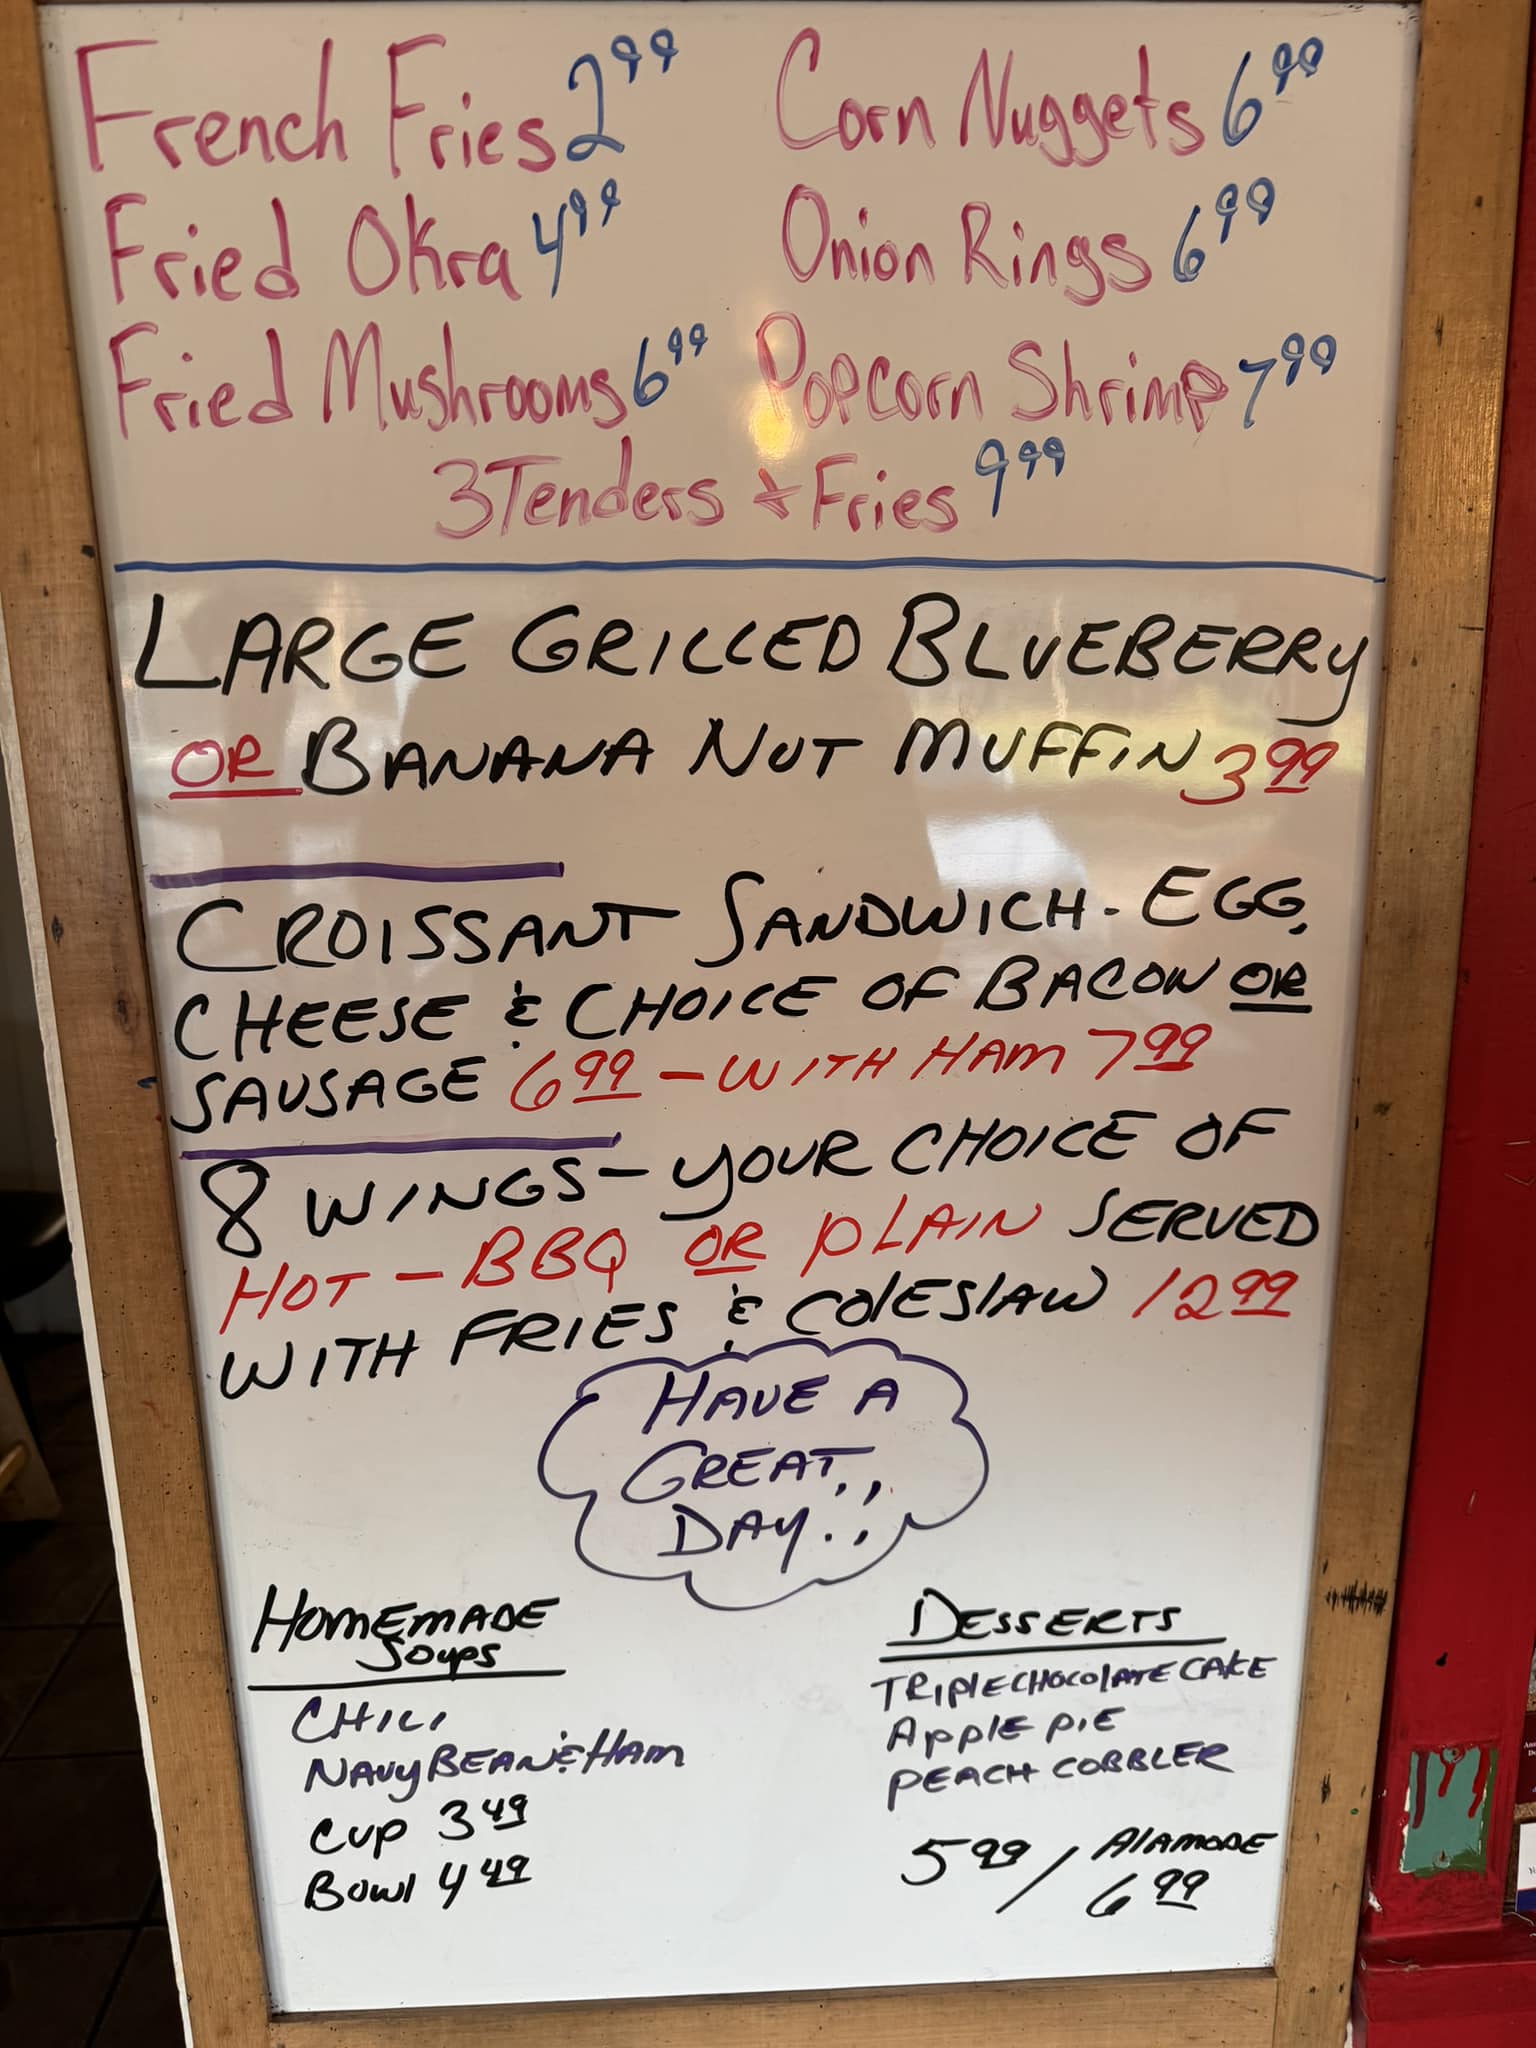 French Fries 2.99 Corn Nuggets 6.99
Fried Okra 4.99 Onion Rings 6.99
Fried Mushrooms 6.99 Popcorn Shrimp 7.99
3 Tenders + Fries 9.99
LARGE GRILLED BLUEBERRY
OR BANANA NUT MUFFIN 3.99
CROISSANT SANDWICH - EGG,
CHEESE & CHOICE OF BACON OR
SAUSAGE 6.99 - WITH HAM 7.99
8 WINGS - YOUR CHOICE OF
HOT - BBQ OR PLAIN SERVED
WITH FRIES & COLESLAW 12.99
HAVE A
GREAT
DAY!!
HOMEMADE
SOUPS
CHILI
NAVY BEAN & HAM
CUP 3.49
BOWL 4.49
DESSERTS
TRIPLE CHOCOLATE CAKE
APPLE PIE
PEACH COBBLER
5.99 / ALAMODE
6.99